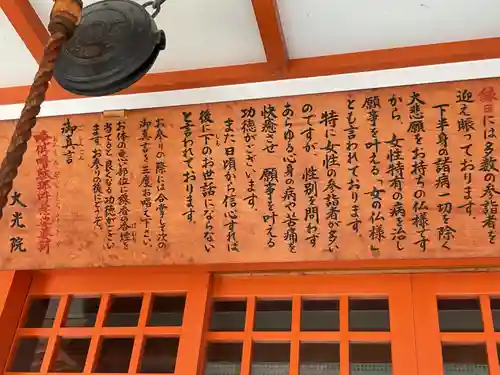 縁日には多数の参詣者を
迎え賑っております。
下半身の諸病一切を除く
大悲願をお持ちの仏様です
から、女性特有の病を治し
願事を叶える「女の仏様」
とも言われております。
特に女性の参詣者が多い
のですが、性別を問わず
あらゆる心身の病や苦痛を
快癒させ 願事を叶える
功徳がございます。
また日頃から信心すれば
後に下のお世話にならない
と言われております。
お参りの際には合掌して次の
御真言を三度お唱え下さい。
お体の悪い部位に線香の香煙を
当てると良くなる功徳がござい
ます。お参りの後にどうぞ。
御真言
大光院